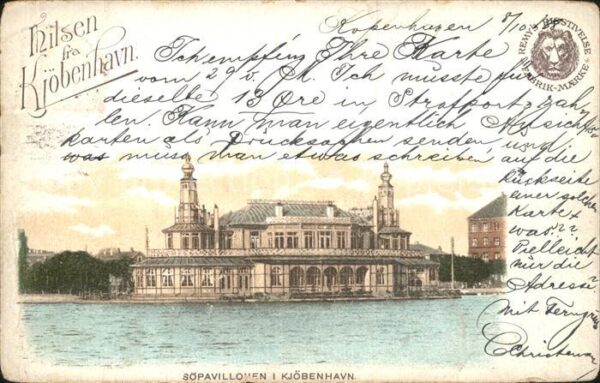 Hilsen
fra
Kjöbenhavn.
REMY'S RISSTIVELSE
FABRIK-MÆRKE
Kopenhagen 8/10
Ich empfing Ihre Karte
vom 29 v. M. Ich musste für
dieselbe 13 Öre in Strafporto zah
len. Kann man eigentlich Ansichts
karten als Drucksachen senden, und
was muss man etwas schreiben auf die
Rückseite
einer solchen
Karte &
was??
Vielleicht
nur die
Adresse?
Mit Ferngruss
Christensen
SÖPAVILLONEN I KJÖBENHAVN.